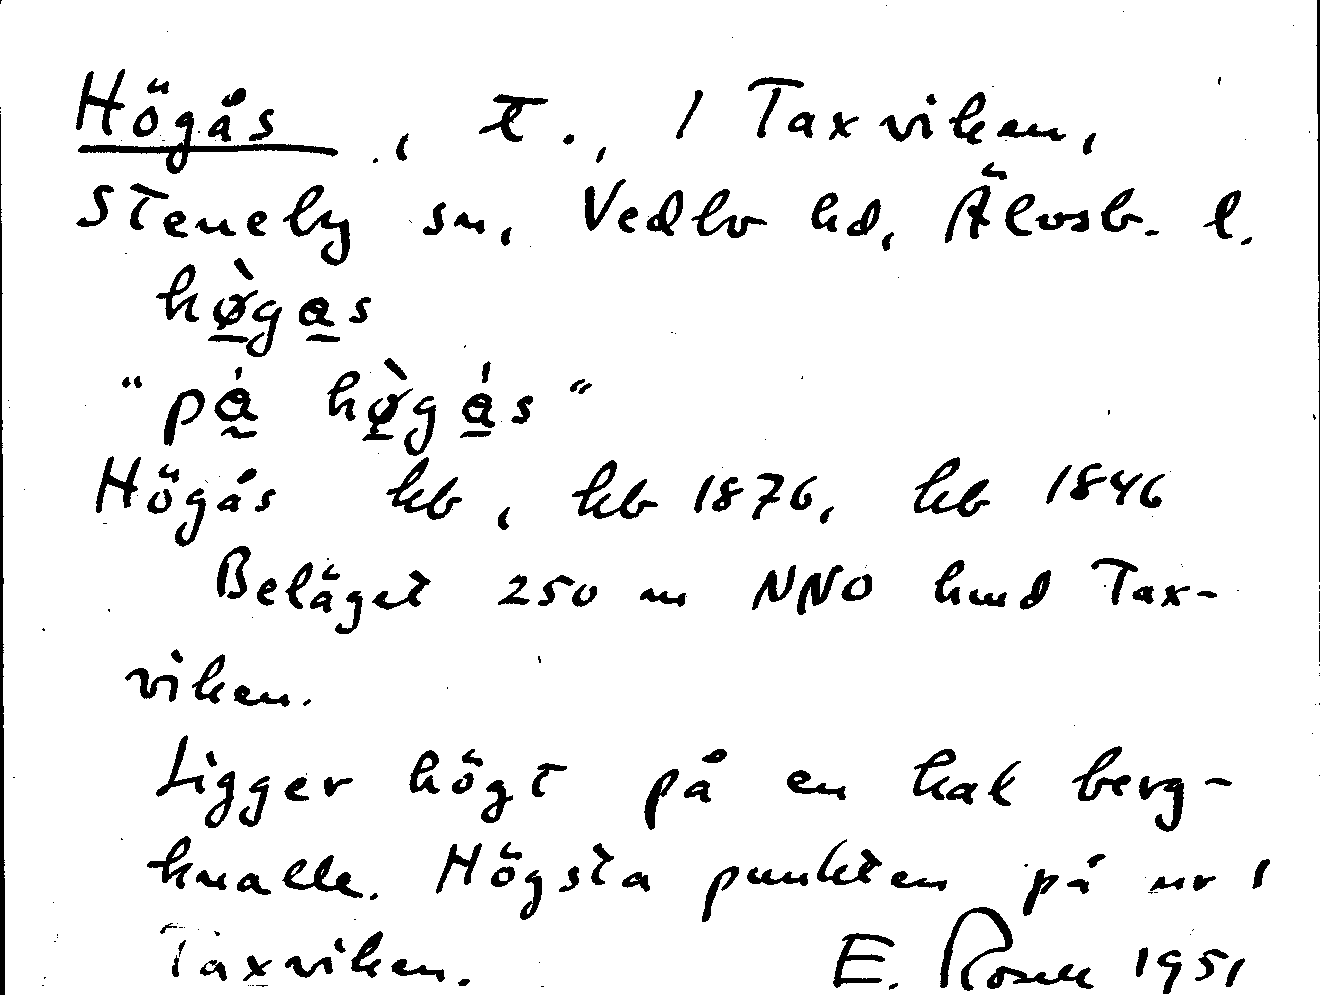 Högås, t., 1 Taxviken,
Steneby sn, Vedbo hd, Älvsb. l.
hø̀gas
"på hø̀gås"
Högås kb, hb 1876, hb 1846
Beläget 250 m NNO hmd Tax-
viken.
Ligger högt på en kal berg-
knalle. Högsta punkten på nr 1
Taxviken. E. Rosell 1951